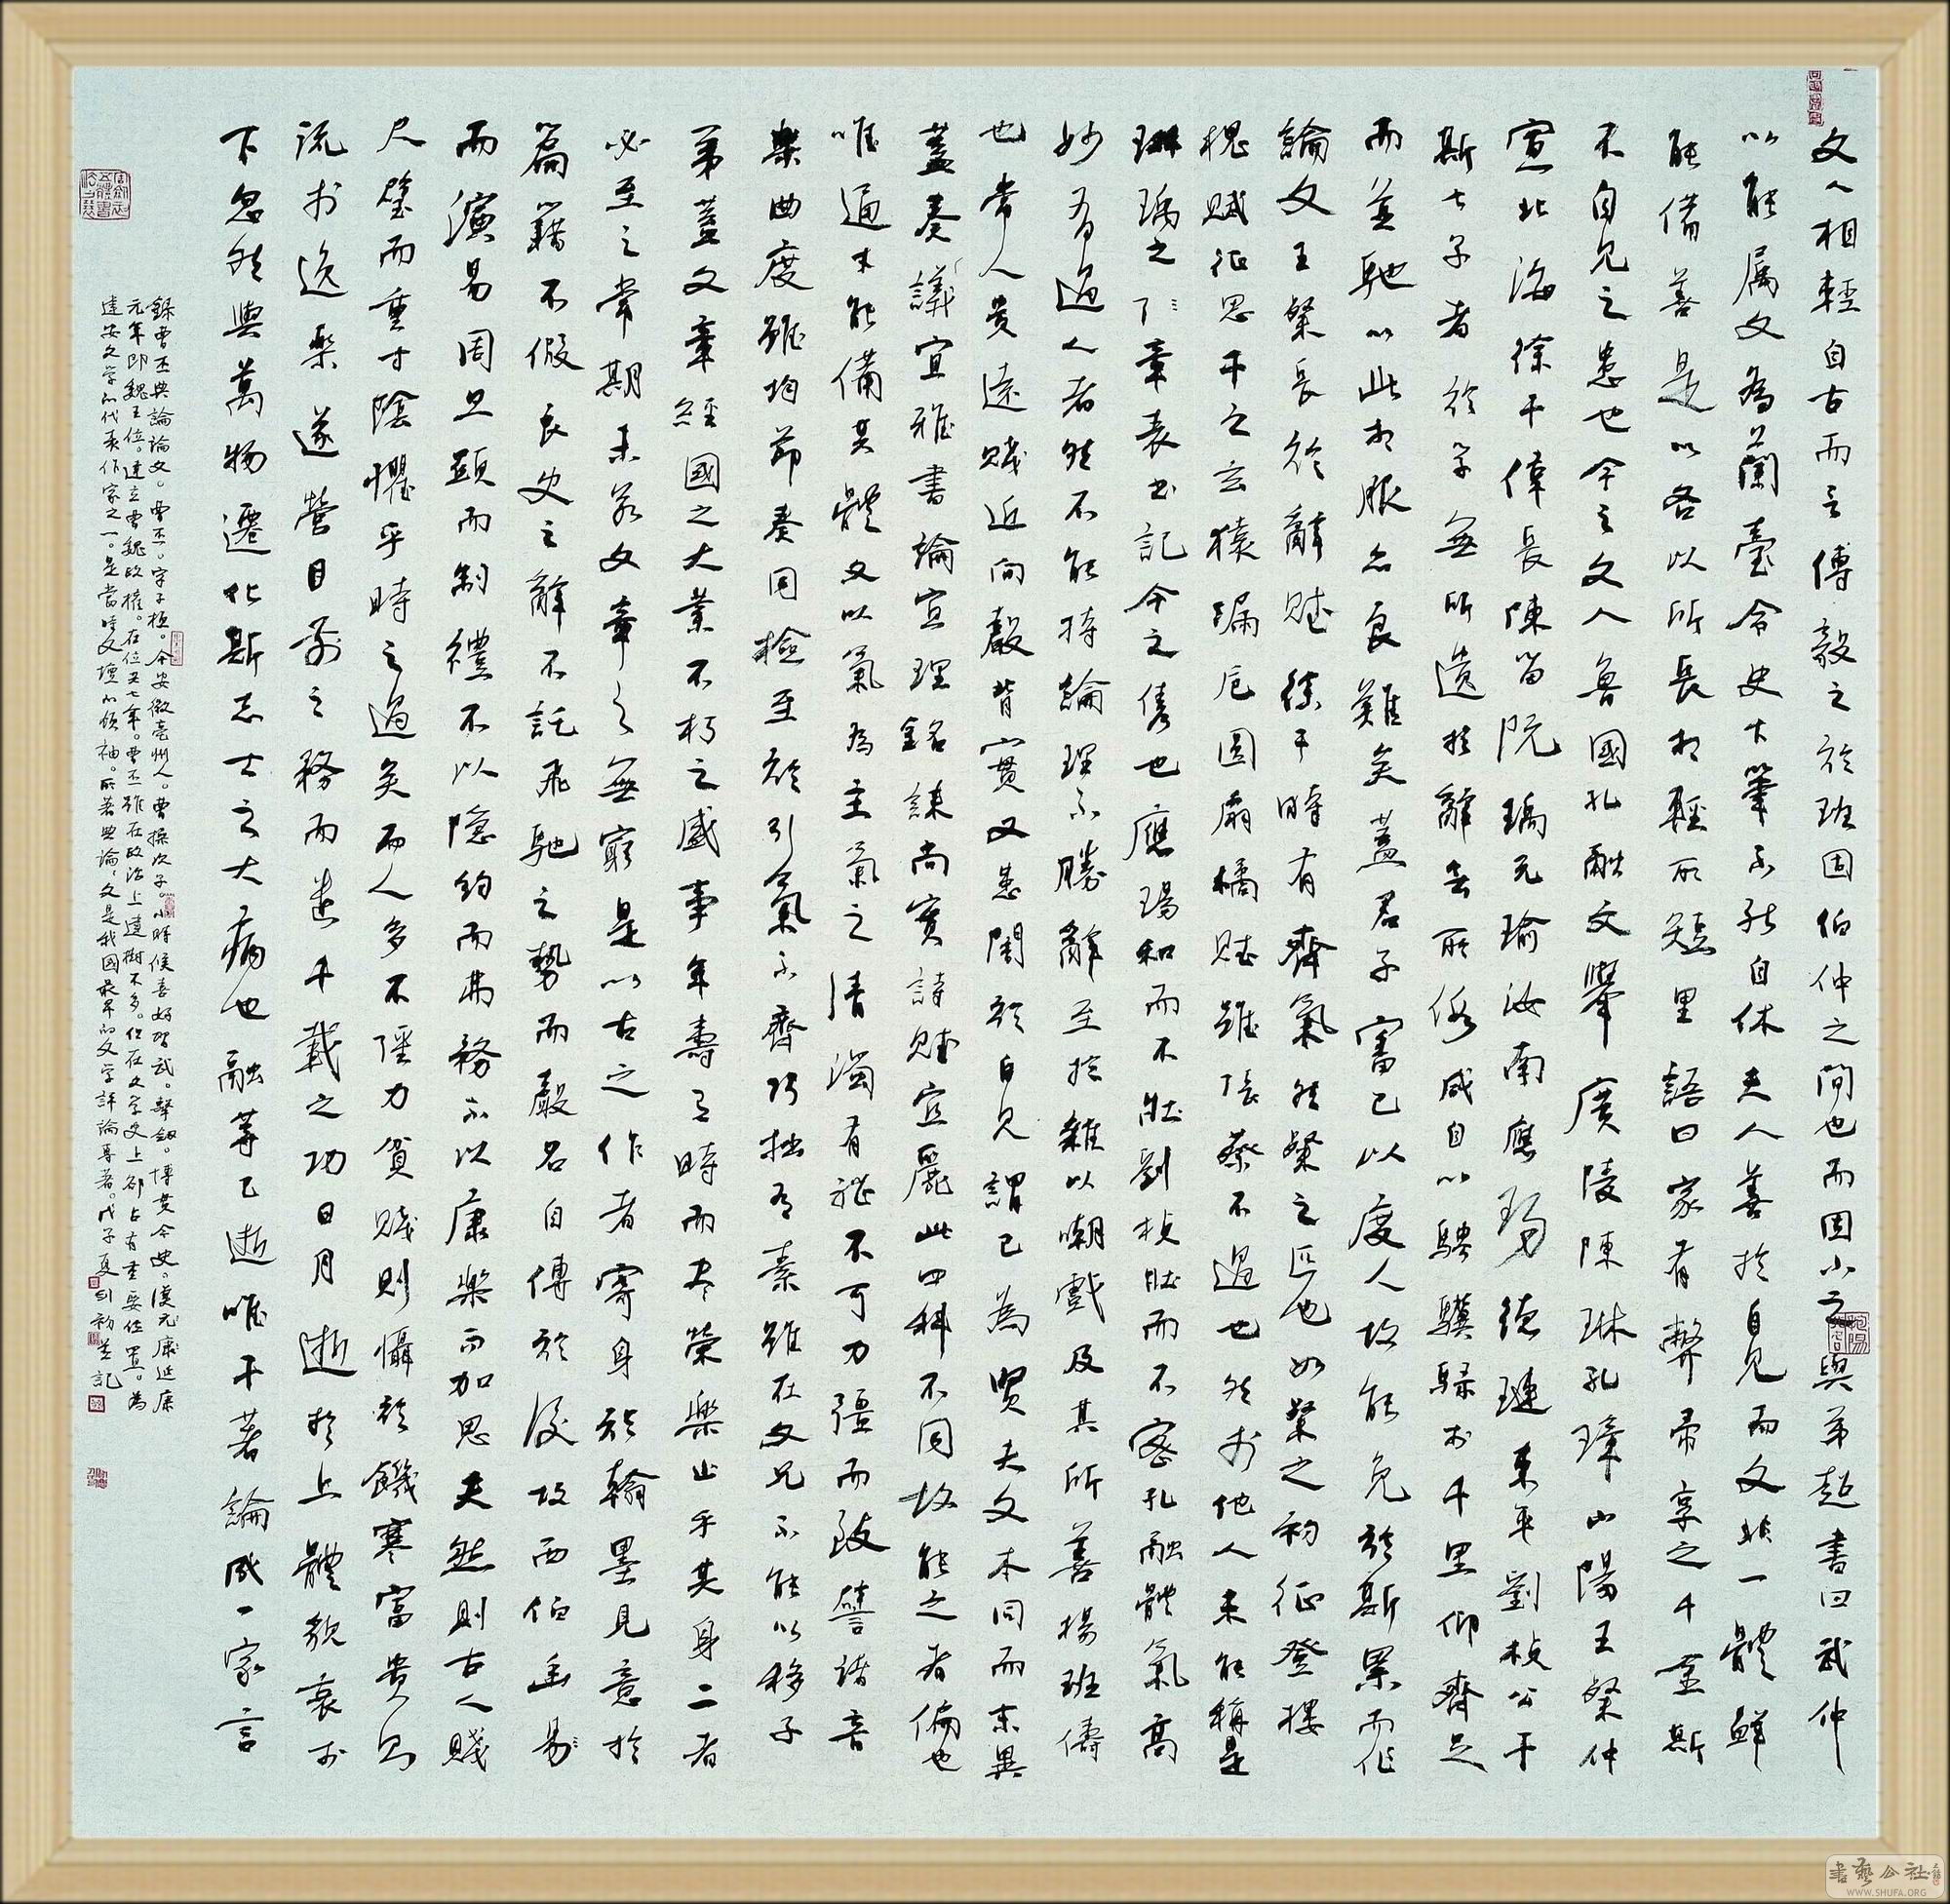 文人相輕自古而言傅毅之於班固伯仲之間也而固小之與弟超書曰武仲
以能属文為蘭臺令史下筆不能自休夫人善於自見而文非一體鮮
能備善是以各以所長相輕所短里語曰家有弊帚享之千金斯
不自見之患也今之文人魯國孔融文舉廣陵陳琳孔璋山陽王粲仲
宣北海徐干偉長陳留阮瑀元瑜汝南應瑒德璉東平劉楨公干
斯七子者於学無所遺於辭無所假咸自以騁驥騄於千里仰齊足
而並馳以此相服亦良難矣蓋君子審己以度人故能免於斯累而作
論文王粲長於辭賦徐干時有齊氣然粲之匹也如粲之初征登樓
槐賦征思干之玄猿漏卮圓扇橘賦雖張蔡不過也然於他人未能稱是
琳瑀之章表书記今之雋也應瑒和而不壯劉楨壯而不密孔融體氣高
妙有過人者然不能持論理不勝辭至於雜以嘲戲及其所善揚班儔
也常人贵遠賤近向聲背實又患闇於自見謂己為贤夫文本同而末異
蓋奏議宜雅書論宜理銘誄尚實詩賦宜麗此四科不同故能之者偏也
唯通才能備其體文以氣為主氣之清濁有體不可力彊而致譬諸音
樂曲度雖均節奏同檢至於引氣不齊巧拙有素雖在父兄不能以移子
弟蓋文章經國之大業不朽之盛事年壽有時而尽榮樂止乎其身二者
必至之常期未若文章之無窮是以古之作者寄身於翰墨見意於
篇籍不假良史之辭不託飛馳之勢而聲名自傳於後故西伯幽易
而演易周旦顯而制禮不以隐約而弗務不以康樂而加思夫然則古人賤
尺璧而重寸陰懼乎時之過矣而人多不强力貧賤則懾於饑寒富贵則
流於逸樂遂營目前之務而遺千載之功日月逝於上體貌衰於
下忽然與萬物遷化斯志士之大痛也融等已逝唯干著論成一家言
錄曹丕典論論文。曹丕。字子桓。今安徽亳州人。曹操次子。小時候喜好習武。擊劍。博覽今史。漢元康延康
元年即魏王位。建立曹魏政權。在位五七年。曹丕雖在政治上建樹不多。但在文学史上却占有重要位置。為
建安文学的代表作家之一。是當時文壇的領袖。所著典論，文是我國最早的文学評論專著。戊子夏 刘初 並記
書藝公社
WWW.SHUFA.ORG